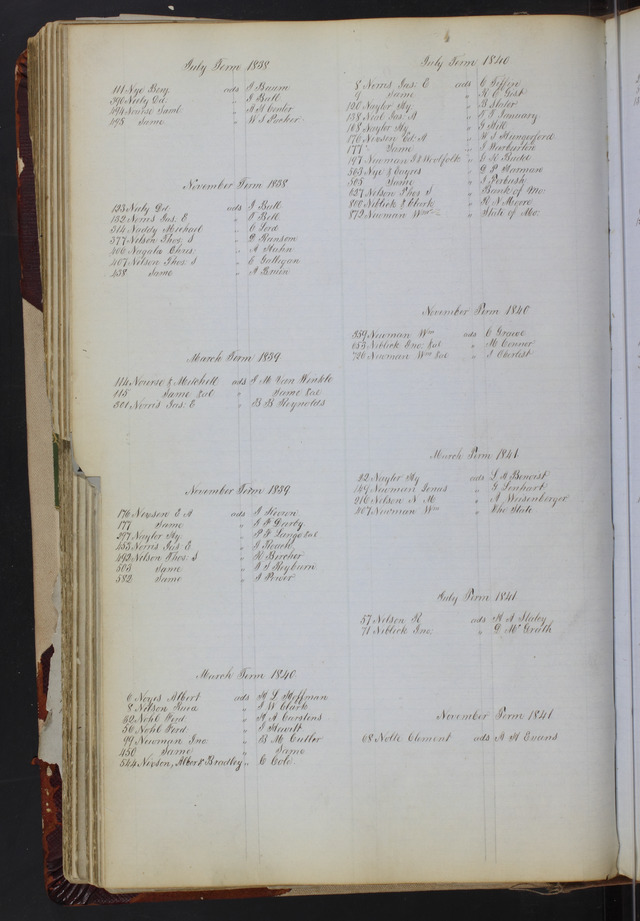 July Term 1838
111 Nye Benj. ads J Baum
390 Neely Ed. " J Bull
494 Nourse Saml. " A H Center
495 Same " W S Packer
November Term 1838
133 Neely Ed. ads J Bull
152 Norris Jas. E " O Bell
314 Naddy Michael " C Lord
377 Nelson Thos. S " D Ransom
400 Nagala Chris. " A Hahn
407 Nelson Thos. S " E Galligan
438 Same " A Bruen
March Term 1839
114 Nourse & Mitchell ads J M Van Winkle
115 Same &al " Same &al
301 Norris Jas. E " B B Reynolds
November Term 1839
176 Newson E A ads J
177 Same " J F Darby
297 Naylor Hy. " P F Lange &al
453 Norris Jas E " J Roach
492 Nelson Thos. S " H Bircher
503 Same " T J Reyburn
582 Same " J Power
March Term 1840
6 Noyes Albert ads H L Hoffman
8 Nelson " J W Clark
32 Nohl Ferd " H A Carstens
50 Nohl Ferd " J Hewitt
99 Newman Jno. " B M Cutler
450 Same " Same
544 Newson, & Bradley " C Cole
6
July Term 1840
8 Norris Jas. E ads C Giffin
9 Same " H C Gist
120 Naylor Hy. " B Slater
138 Jas. A " J January
168 Naylor Hy. " J Hill
170 Newson Ed A " W S Hungerford
177 Same " J Warburton
197 Newman & Woolfolk " G R Budd
503 Nye & Eayes " G P Harman
505 Same " J Perbush
637 Nelson Thos. S " Bank of Mo.
800 Niblick & Clark " H N Moore
872 Newman Wm " State of Mo.
November Term 1840
359 Newman Wm ads C Grawe
653 Niblick Jno. &al " M Conner
726 Newman Wm &al " J Eberlest
March Term 1841
32 Naylor Hy ads L A Benoist
149 Newman Jonas " G Lenhart
216 Nelson N M " A Weisenberger
407 Newman Wm " The State
July Term 1841
57 Nelson R ads H A Slaby
71 Niblick Jno. " D McGrath
November Term 1841
68 Nolte Clement ads A H Evans